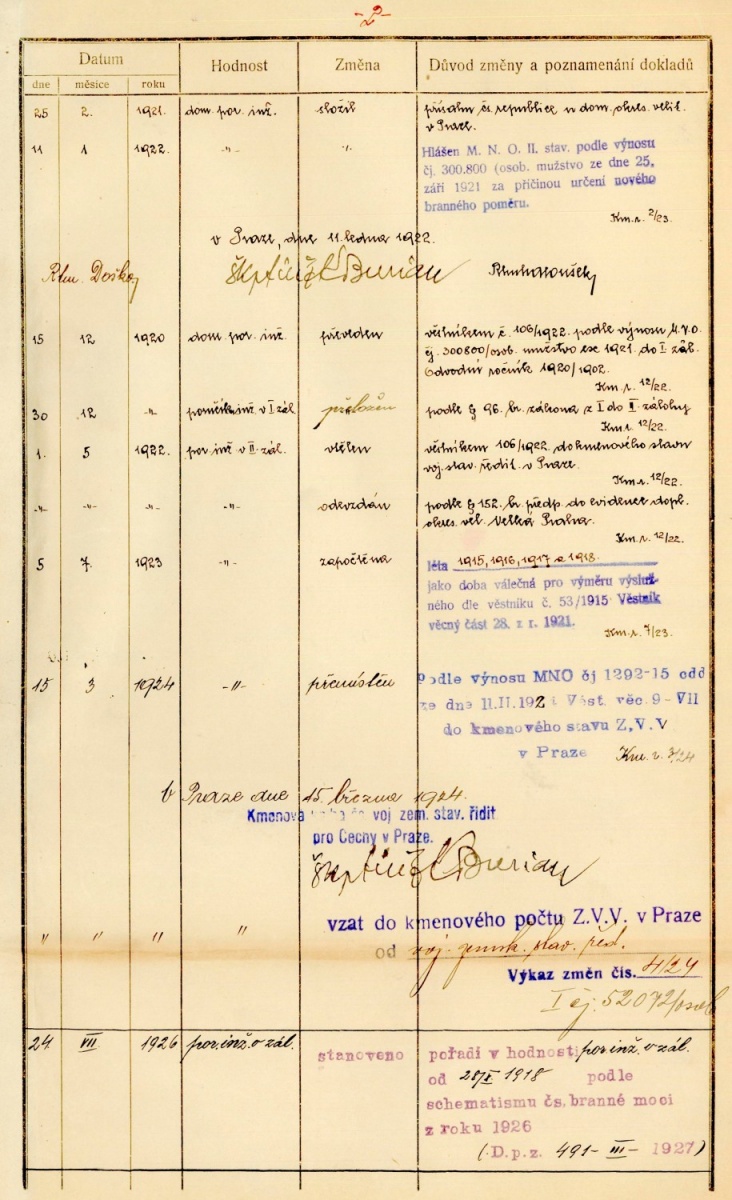 -2-
Datum Hodnost Změna Důvod změny a poznamenání dokladů
dne měsíce roku
25 2. 1921. dom. por. inž. složil přísahu čs. republice u dom. okres. velit.
v Praze.
11 1 1922. -"- "
Hlášen M. N. O. II. stav. podle výnosu
čj. 300.800 (osob. mužstvo ze dne 25,
září 1921 za příčinou určení nového
branného poměru.
Km. r. 2/23.
v Praze, dne 11. ledna 1922.
Rtm. škpt. inž. Burian
15 12 1920 dom. por. inž. převeden věstníkem č. 106/1922. podle výnosu M.N.O.
čj. 300800/osob. mužstvo ex 1921. do I. zál.
Odvodní ročník 1920/1902.
Km. r. 12/22.
30 12 -"- poručík inž. v I zál. přeložen podle § 96. br. zákona z I do II. zálohy
Km. r. 12/22.
1. 5 1922. por. inž. v II. zál. vtělen věstníkem 106/1922. do kmenového stavu
voj. stav. ředit. v Praze.
Km. r. 12/22.
-"- -"- -"- -"- odevzdán podle § 152. br. předp. do evidence dopl.
okres. vel. Velká Praha.
Km. r. 12/22.
5 7. 1923 -"- započtěna léta 1915, 1916, 1917 a 1918.
jako doba válečná pro výměru výsluž-
ného dle věstníku č. 53/1915 Věstník
věcný část 28. z r. 1921.
Km. r. 7/23.
15 3 1924 -"- přemístěn Podle výnosu MNO čj 1292-15 odd
ze dne 11.II.192 Věst. věc. 9-VII
do kmenového stavu Z.V.V
v Praze Km. r. 3/24
V Praze dne 15. března 1924.
Kmenová voj zem. stav. řidit
pro Čechy v Praze.
škpt. inž. Burian
" " " " vzat do kmenového počtu Z.V.V. v Praze
od voj. zemsk. stav. řed.
Výkaz změn čís. 4/24
I čj. 52072/osob
24. VII. 1926 por. inž. v zál. stanoveno pořadí v hodnosti por. inž. v zál.
od 1918 podle
schematismu čs. branné moci
z roku 1926
(D.p.z. 491-III-1927)